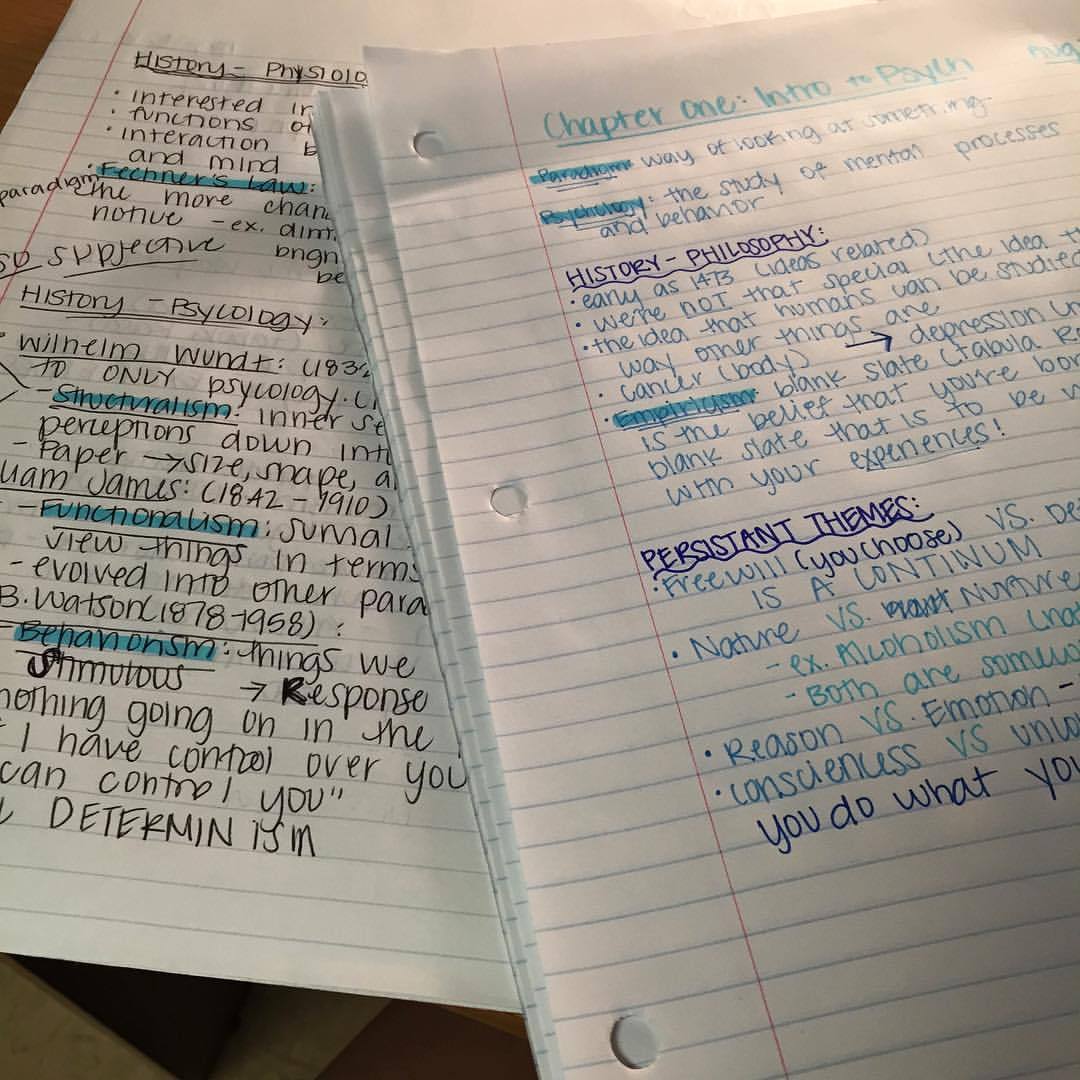 History - Physiolo
• interested in
• functions of
• interaction b
and mind
• Fechner's Law:
paradigm the more chan
notive - ex. dim
bngn
so subjective be
History - Psycology:
• Wilhelm Wundt: (183
to ONLY psycology.
- Structuralism: inner se
perceptions down int
- Paper → size, shape, a
liam James: (1842 - 1910)
- Functionalism: Jumal
view things in terms
- evolved into other para
B. Watson (1878-1958):
- Behaviorism: things we
Stimulous → Response
nothing going on in the
I have control over you
can control you"
DETERMINISM
Chapter One: Intro to Psych Aug
Paradigm way of looking at something.
Psychology: the study of mental processes
and behavior
HISTORY - PHILOSOPHY:
• early as 1473 (ideas related)
• we're NOT that special (the idea th
• the idea that humans can be studied
way other things are
• cancer (body) → depression (m
• Empiricism blank slate (Tabula Ra
is the belief that you're bor
blank slate that is to be w
with your experiences!
PERSISTANT THEMES:
• Free will (you choose) VS. De
IS A CONTINUM
• Nature VS. Nurture
- ex. Alcoholism (nat
- Both are somewh
• Reason VS. Emotion -
• conscieness VS unco
you do what you